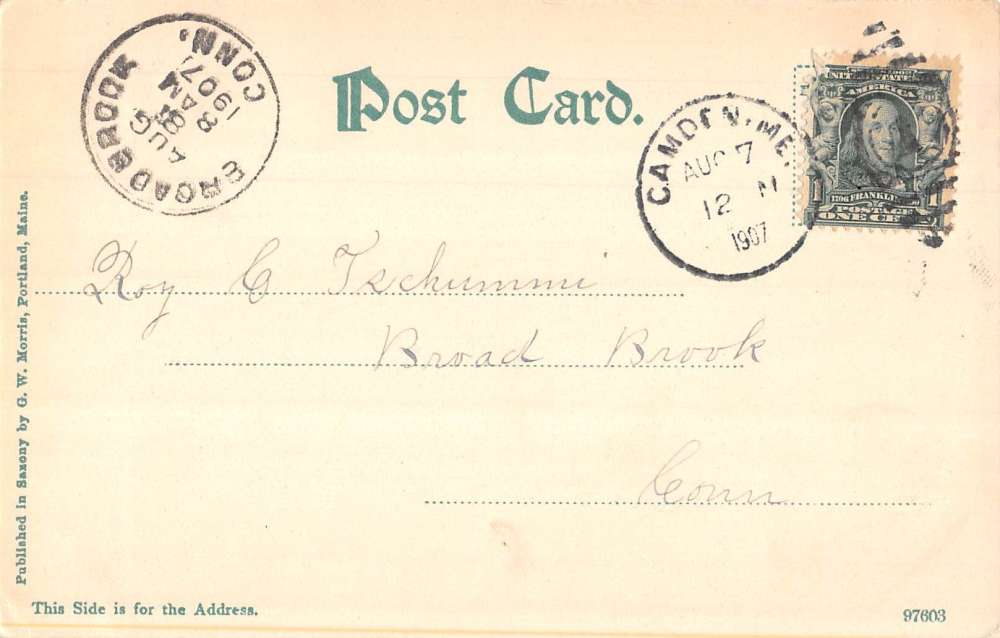 Post Card.
BROADBROOK CONN.
AUG
8
8 AM
1907
CAMDEN, ME.
AUG 7
12 M
1907
UNITED STATES
AMERICA
1 1
1706 FRANKLIN
POSTAGE
ONE CE
Roy C Tschummi
Broad Brook
Conn
Published in Saxony by G. W. Morris, Portland, Maine.
This Side is for the Address.
97603